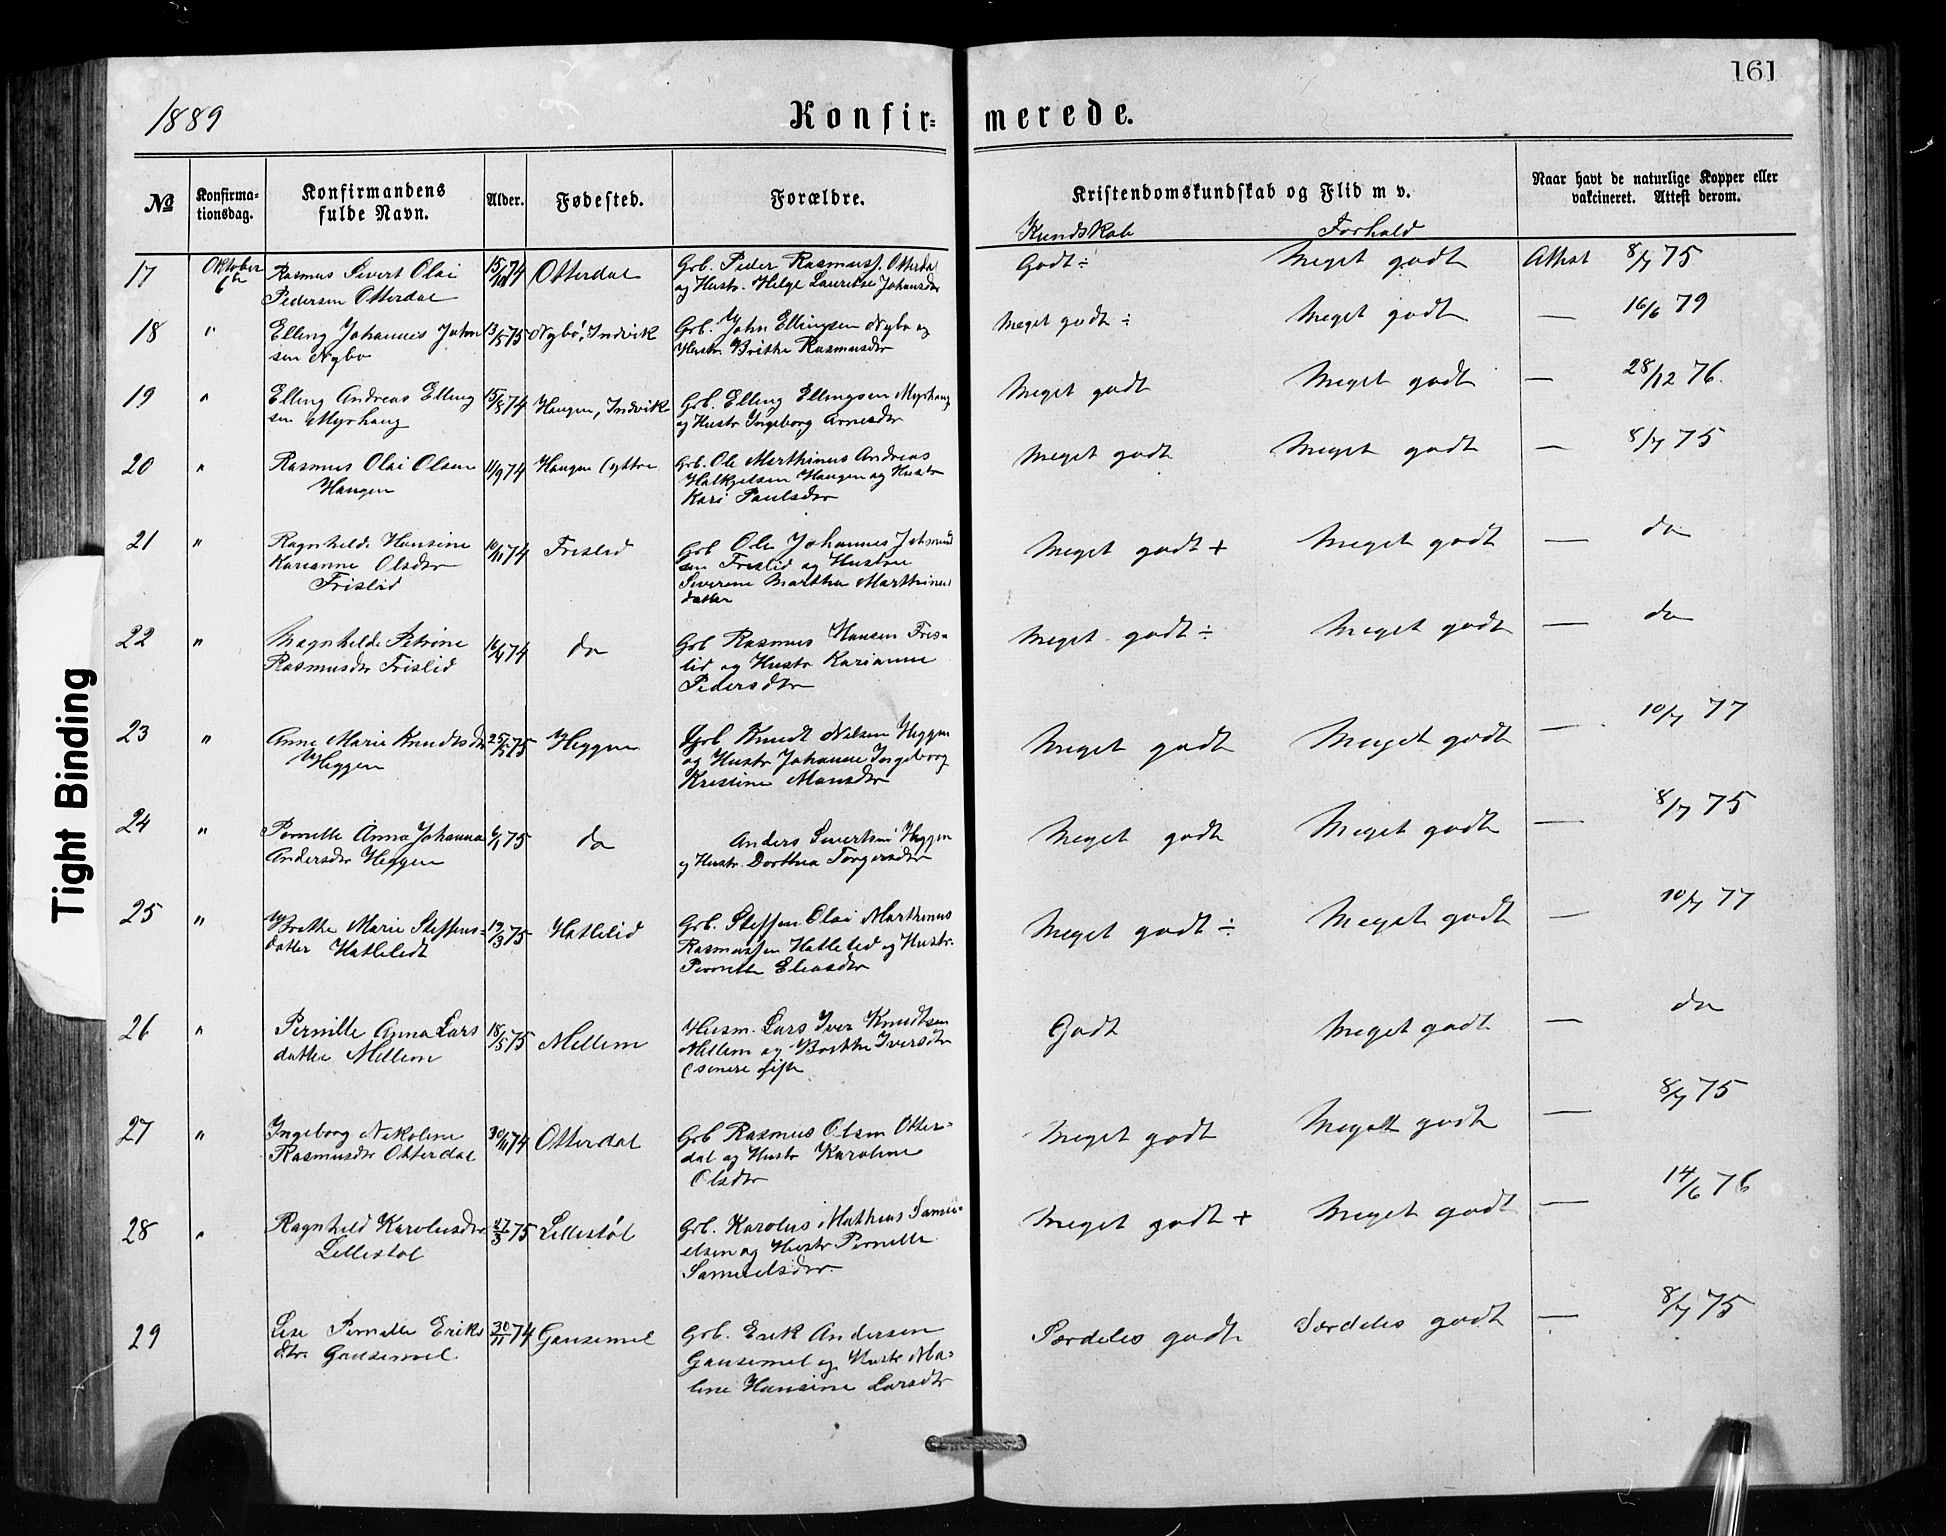 161
1889
Konfir=
merede.
№
Konfirma-
tionsdag.
Konfirmandens
fulde Navn.
Alder.
Fødested.
Forældre.
Kristendomskundskab og Flid m v.
Kundskab
Forhold
Naar havt de naturlige Kopper eller
vakcineret. Attest derom.
17 Oktober Rasmus Sivert Olai 15/10 74 Otterdal Grb. Peder Rasmuss. Otterdal Godt ÷ Meget godt Attest 8/7 75
6te Pedersen Otterdal og Hustr. Helge Lauritse Johansdtr
18 " Elling Johannes John 13/5 75 Nybø, Indvik Grb. John Ellingsen Nybø og Meget godt ÷ Meget godt — 16/6 79
sen Nybø Hustr Brithe Rasmusdtr
19 " Elling Andreas Elling 15/8 74 Haugen, Indvik Grb. Elling Ellingsen Myrhaug Meget godt Meget godt — 28/12 76.
sen Myrhaug og Hustr Ingeborg Arnesdtr
20 " Rasmus Olai Olsen 11/9 74 Haugen (yttre Grb. Ole Marthinus Andreas Meget godt Meget godt — 8/7 75
Haugen Halkjelsen Haugen og Hustr
Kari Paulsdtr
21 " Ragnhilde Hansine 10/11 74 Frislid Grb Ole Johannes Johannes Meget godt + Meget godt — do
Karianne Olsdtr sen Frislid og Hustru
Frislid Severine Marthea Marthinus
datter
22 " Magnhilde Petrine 16/9 74 do Grb Rasmus Hansen Fris- Meget godt ÷ Meget godt — do
Rasmusdtr Frislid lid og Hustr Karianne
Pedersdtr
23 " Anne Marie Knudtsdtr 25/5 75 Heggen Grb Knudt Nilsen Heggen Meget godt Meget godt — 10/7 77
Heggen og Hustr Johanne Ingeborg
Kristine Monsdtr
24 " Pernille Anna Johanna 6/1 75 do Anders Sivertsen Heggen Meget godt Meget godt — 8/7 75
Andersdtr Heggen og Hustr. Dorthea Torgersdtr
25 " Brithe Marie Steffens= 19/3 75 Hatlelid Grb. Steffen Olai Marthinus Meget godt ÷ Meget godt — 10/7 77
datter Hatlelidt Rasmussen Hatlelid og Hustr.
Pernille Eliasdtr
26 " Pernille Anna Lars 18/5 75 Mellem Husm. Lars Iver Knudtsen Godt Meget godt — do
datter Mellem Mellem og Brithe Iversdtr
(senere gift
27 " Ingeborg Nikoline 30/11 74 Otterdal Grb Rasmus Olsen Otter- Meget godt Meget godt — 8/7 75
Rasmusdtr Otterdal dal og Hustr Karoline
Olsdtr
28 " Ragnhild Karolusdtr 27/3 75 Lillestøl Grb. Karolus Mathias Samu- Meget godt + Meget godt — 14/6 76
Lillestøl elsen og Hustr Pernille
Samuelsdtr.
29 Lise Pernille Eriks 30/11 74 Gausemel Grb. Erik Andersen Særdeles godt Særdeles godt — 8/7 75
dtr. Gausemel Gausemel og Hustr Ma-
line Hansine Larsdtr
Tight Binding